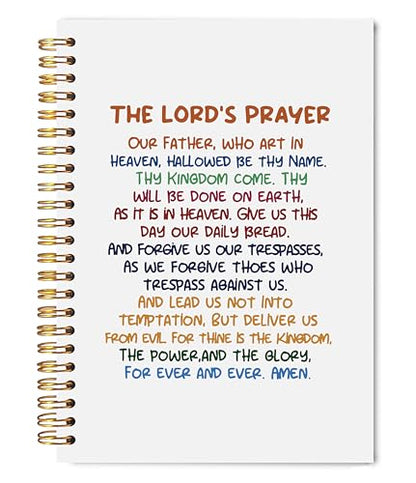 THE LORD'S PRAYER
OUR FATHER, WHO ART IN
HEAVEN, HALLOWED BE THY NAME.
THY KINGDOM COME. THY
WILL BE DONE ON EARTH,
AS IT IS IN HEAVEN. GIVE US THIS
DAY OUR DAILY BREAD.
AND FORGIVE US OUR TRESPASSES,
AS WE FORGIVE THOES WHO
TRESPASS AGAINST US.
AND LEAD US NOT INTO
TEMPTATION, BUT DELIVER US
FROM EVIL. FOR THINE IS THE KINGDOM,
THE POWER,AND THE GLORY,
FOR EVER AND EVER. AMEN.